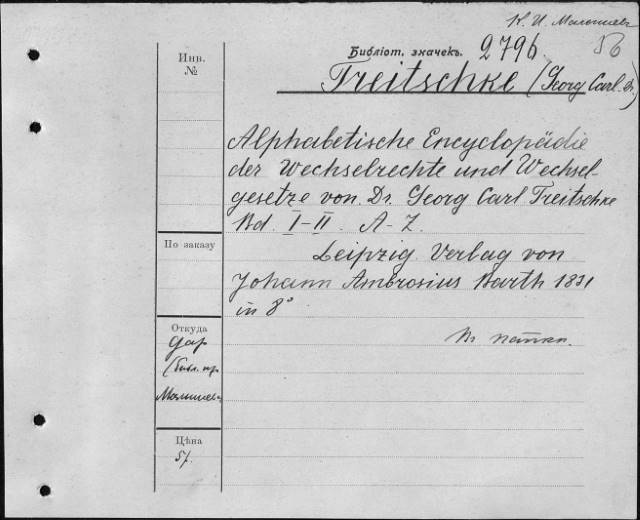 К. И. Малышевъ
Библіот. значекъ. 2796. 56
Treitschke (Georg Carl. Dr.)
Инв.
№
Alphabetische Encyclopädie
der Wechselrechte und Wechsel-
gesetze von. Dr. Georg Carl Treitschke
Bd. I-II. A-Z.
По заказу
Leipzig. Verlag von
Johann Ambrosius Barth 1831
in 8°
Откуда
Дар
Малышева
Цѣна
5/.